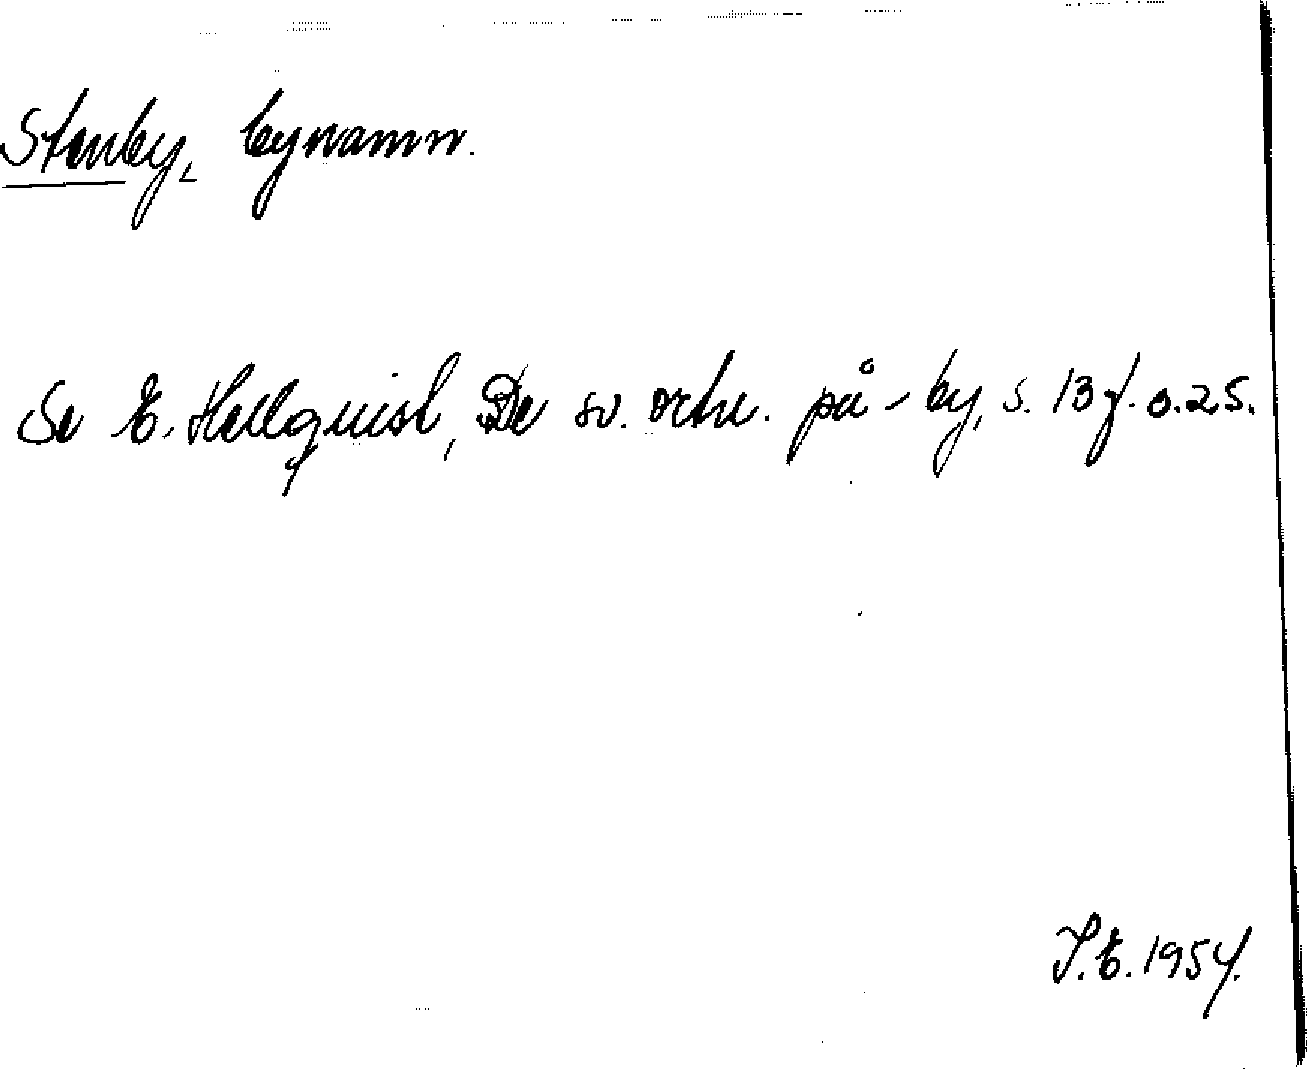 Stenby, bynamn.
Se E. Hellquist, De sv. ortn. på -by, s. 13 f. o. 25.
S.E. 1954.